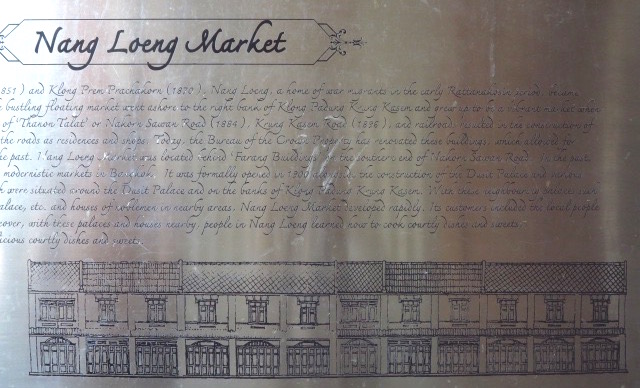 Nang Loeng Market
851 ) and Klong Prem Prachakorn ( 1870 ), Nang Loeng, a home of war migrants in the early Rattanakosin period, became
bustling floating market went ashore to the right bank of Klong Padung Krung Kasem and grew up to a vibrant market when
of 'Thanon Talat' or Nakorn Sawan Road ( 1884 ), Krung Kasem Road and railroad, resulted in the construction of
the roads as residences and shops. Today, the Bureau of the Crown Property has renovated these buildings, which
he past. Nang Loeng Market was located behind 'Farang Buildings' the southern end of Nakorn Sawan Road.
modernistic markets in Bangkok. It was formally opened in the construction of the Dusit Palace and various
h were situated around the Dusit Palace and on the banks of Klong Padung Krung Kasem. With these
alace, etc. and houses of noblemen in nearby areas, Nang Loeng Market developed rapidly. Its customers included the local people
over, with these palaces and houses nearby, people in Nang Loeng learned how to cook courtly dishes and sweets
licious courtly dishes and sweets.